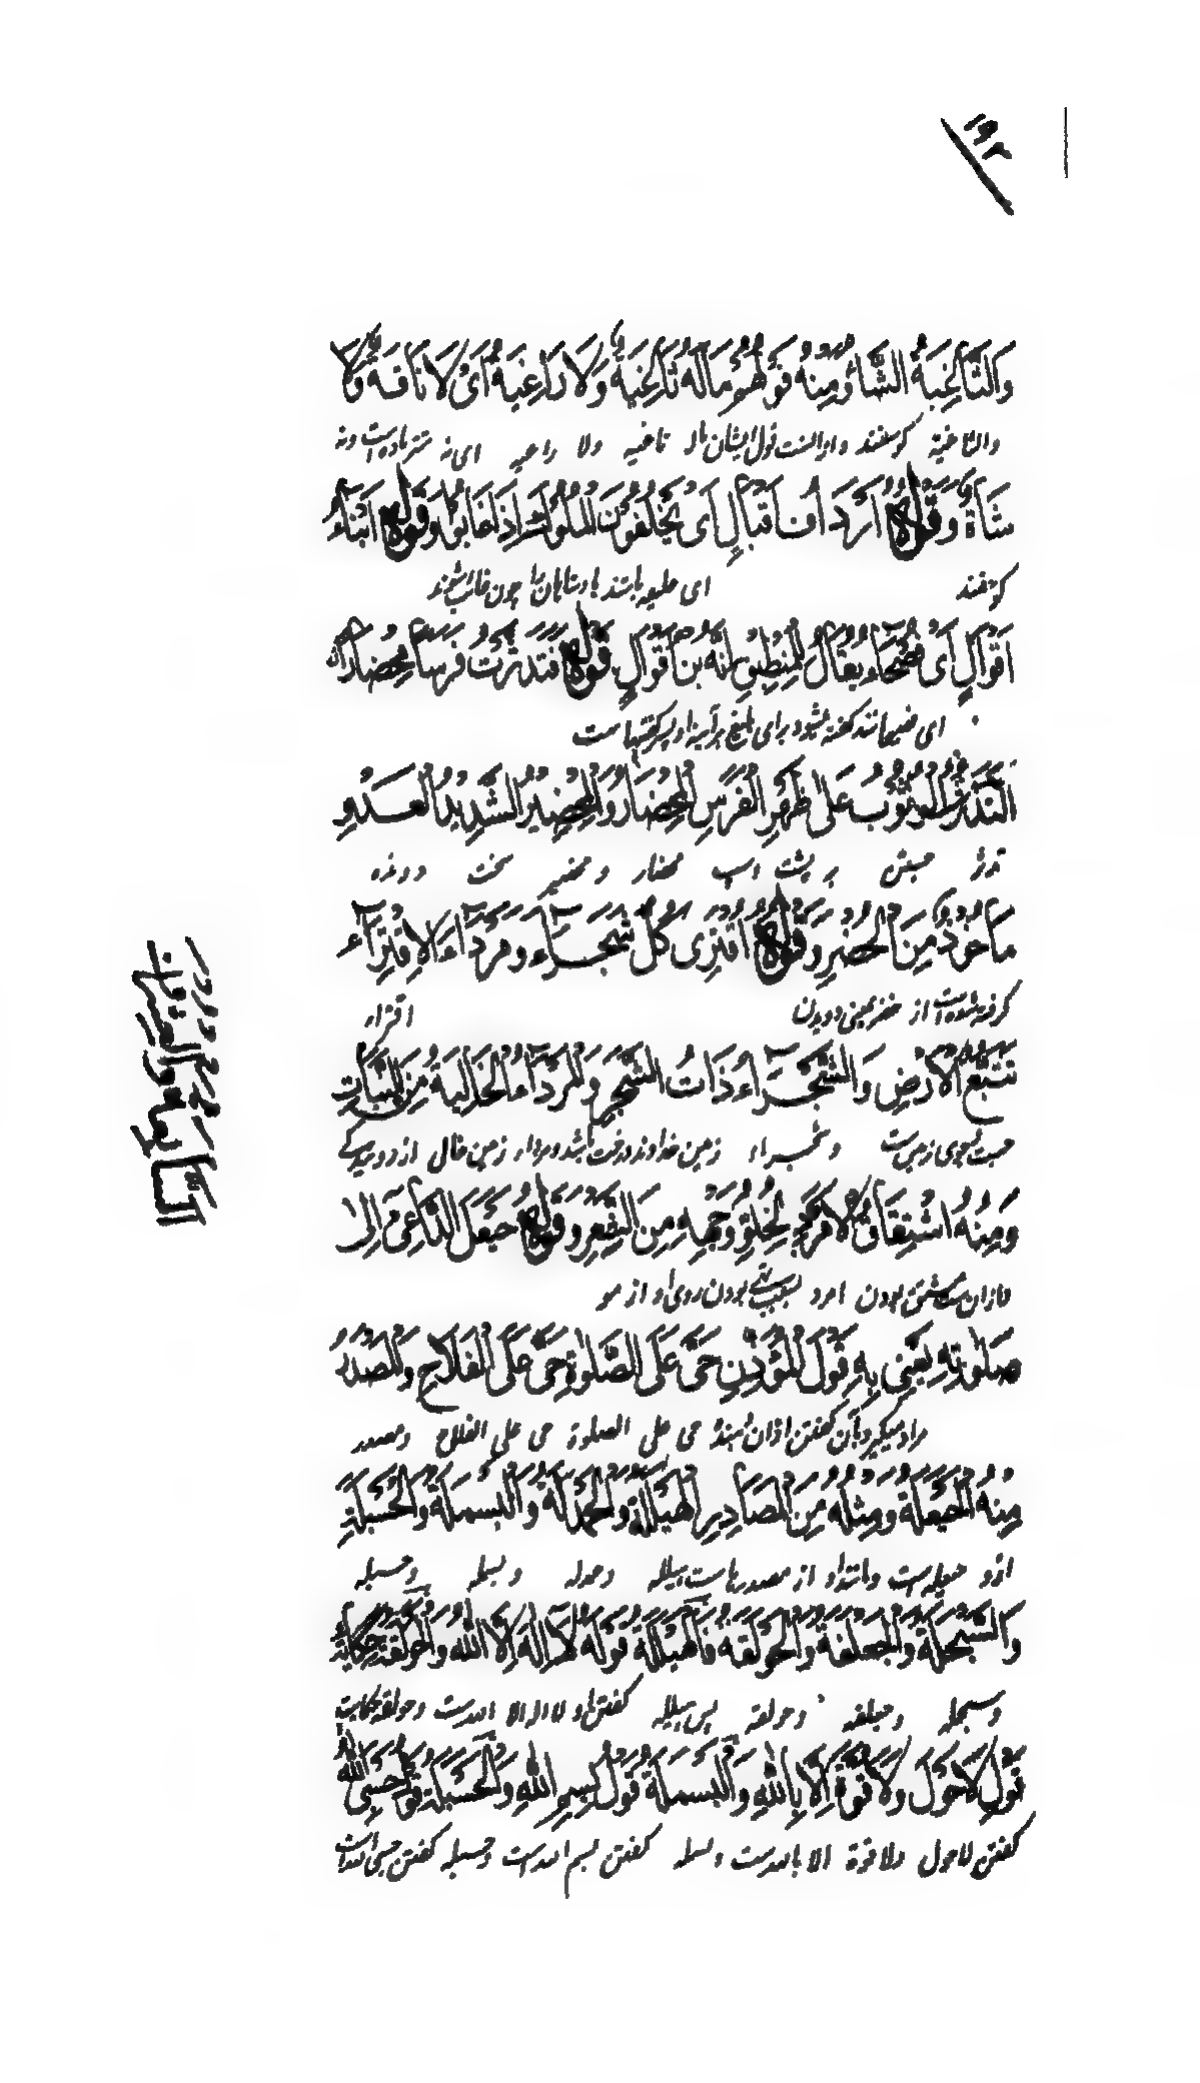 ١٩٢
وَالثَّاغِيَةُ الشَّاةُ وَمِنْهُ قَوْلُهُمْ مَا لَهُ ثَاغِيَةٌ وَلَا رَاغِيَةٌ اَىْ لَا نَاقَةٌ وَلَا
والثاغية گوسفند و از انست قول ایشان ما له ثاغیه ولا راغیه ای نه شتر ماده است و نه
شَاةٌ وَقَوْلُهُ اَرْدَافُ اَقْيَالٍ اَىْ يَخْلُفُوْنَ الْمُلُوْكَ اِذَا غَابُوْا وَقَوْلُهُ اَبْنَاءُ
گوسفند ای خلیفه باشند پادشاهان را چون غائب شوند
اَقْوَالٍ اَىْ فُصَحَاءُ يُقَالُ لِلْمِنْطِيْقِ اِنَّهُ ابْنُ اَقْوَالٍ قَوْلُهُ فَتَدَثَّرْتُ فَرَسًا مِحْضَارًا
ای فصیحانند گفته میشود برای بلیغ
اَلتَّدَثُّرُ الْوُثُوْبُ عَلٰى ظَهْرِ الْفَرَسِ الْمِحْضَارُ وَالْمِحْضِيْرُ الشَّدِيْدُ الْعَدْوِ
تدثر جستن بر پشت اسپ محضار و محضیر سخت دونده
مَاْخُوْذٌ مِنَ الْحُضْرِ وَقَوْلُهُ اَقْتَرِىْ كُلَّ شَجْرَاءَ وَمَرْدَاءَ الْاِقْتِرَاءُ
گرفته شده است از حضر بمعنی دویدن اقتراء
تَتَبُّعُ الْاَرْضِ وَالشَّجْرَاءُ ذَاتُ الشَّجَرِ وَالْمَرْدَاءُ الْخَالِيَةُ مِنَ النَّبَاتِ
جستجوی زمین است و شجراء زمین خداوند درخت باشد و مرداء زمین خالی از روئیدگی
وَمِنْهُ اشْتِقَاقُ الْاَمْرَدِ لِخُلُوِّ وَجْهِهِ مِنَ الشَّعْرِ وَقَوْلُهُ حَيْعَلَ الدَّاعِىْ اِلٰى
و ازان مشتق بودن امرد بسبب تهی بودن روی او از مو
صَلٰوتِهِ يَعْنِىْ بِهِ قَوْلَ الْمُؤَذِّنِ حَىَّ عَلَى الصَّلٰوةِ حَىَّ عَلَى الْفَلَاحِ وَالْمَصْدَرُ
مراد میگیرد بآن گفتن اذان دهنده حی علی الصلوة حی علی الفلاح و مصدر
مِنْهُ الْحَيْعَلَةُ وَمِثْلُهُ مِنَ الْمَصَادِرِ الْهَيْلَلَةُ وَالْحَمْدَلَةُ وَالْبَسْمَلَةُ وَالْحَسْبَلَةُ
ازو حیعله است و مانند او از مصدرهاست هیلله و حمدله و بسمله و حسبله
وَالسَّبْحَلَةُ وَالْجَعْلَفَةُ وَالْحَوْلَقَةُ فَالْهَيْلَلَةُ قَوْلُهُ لَا اِلٰهَ اِلَّا اللّٰهُ وَالْحَوْلَقَةُ حِكَايَةُ
و سبحله و جعلفه و حولقه پس هیلله گفتن او لا اله الا الله است و حولقه حکایت
قَوْلِ لَا حَوْلَ وَلَا قُوَّةَ اِلَّا بِاللّٰهِ وَالْبَسْمَلَةُ قَوْلُ بِسْمِ اللّٰهِ وَالْحَسْبَلَةُ قَوْلُ حَسْبِىَ اللّٰهُ
گفتن لا حول ولا قوة الا بالله است و بسمله گفتن بسم الله است و حسبله گفتن حسبی الله است